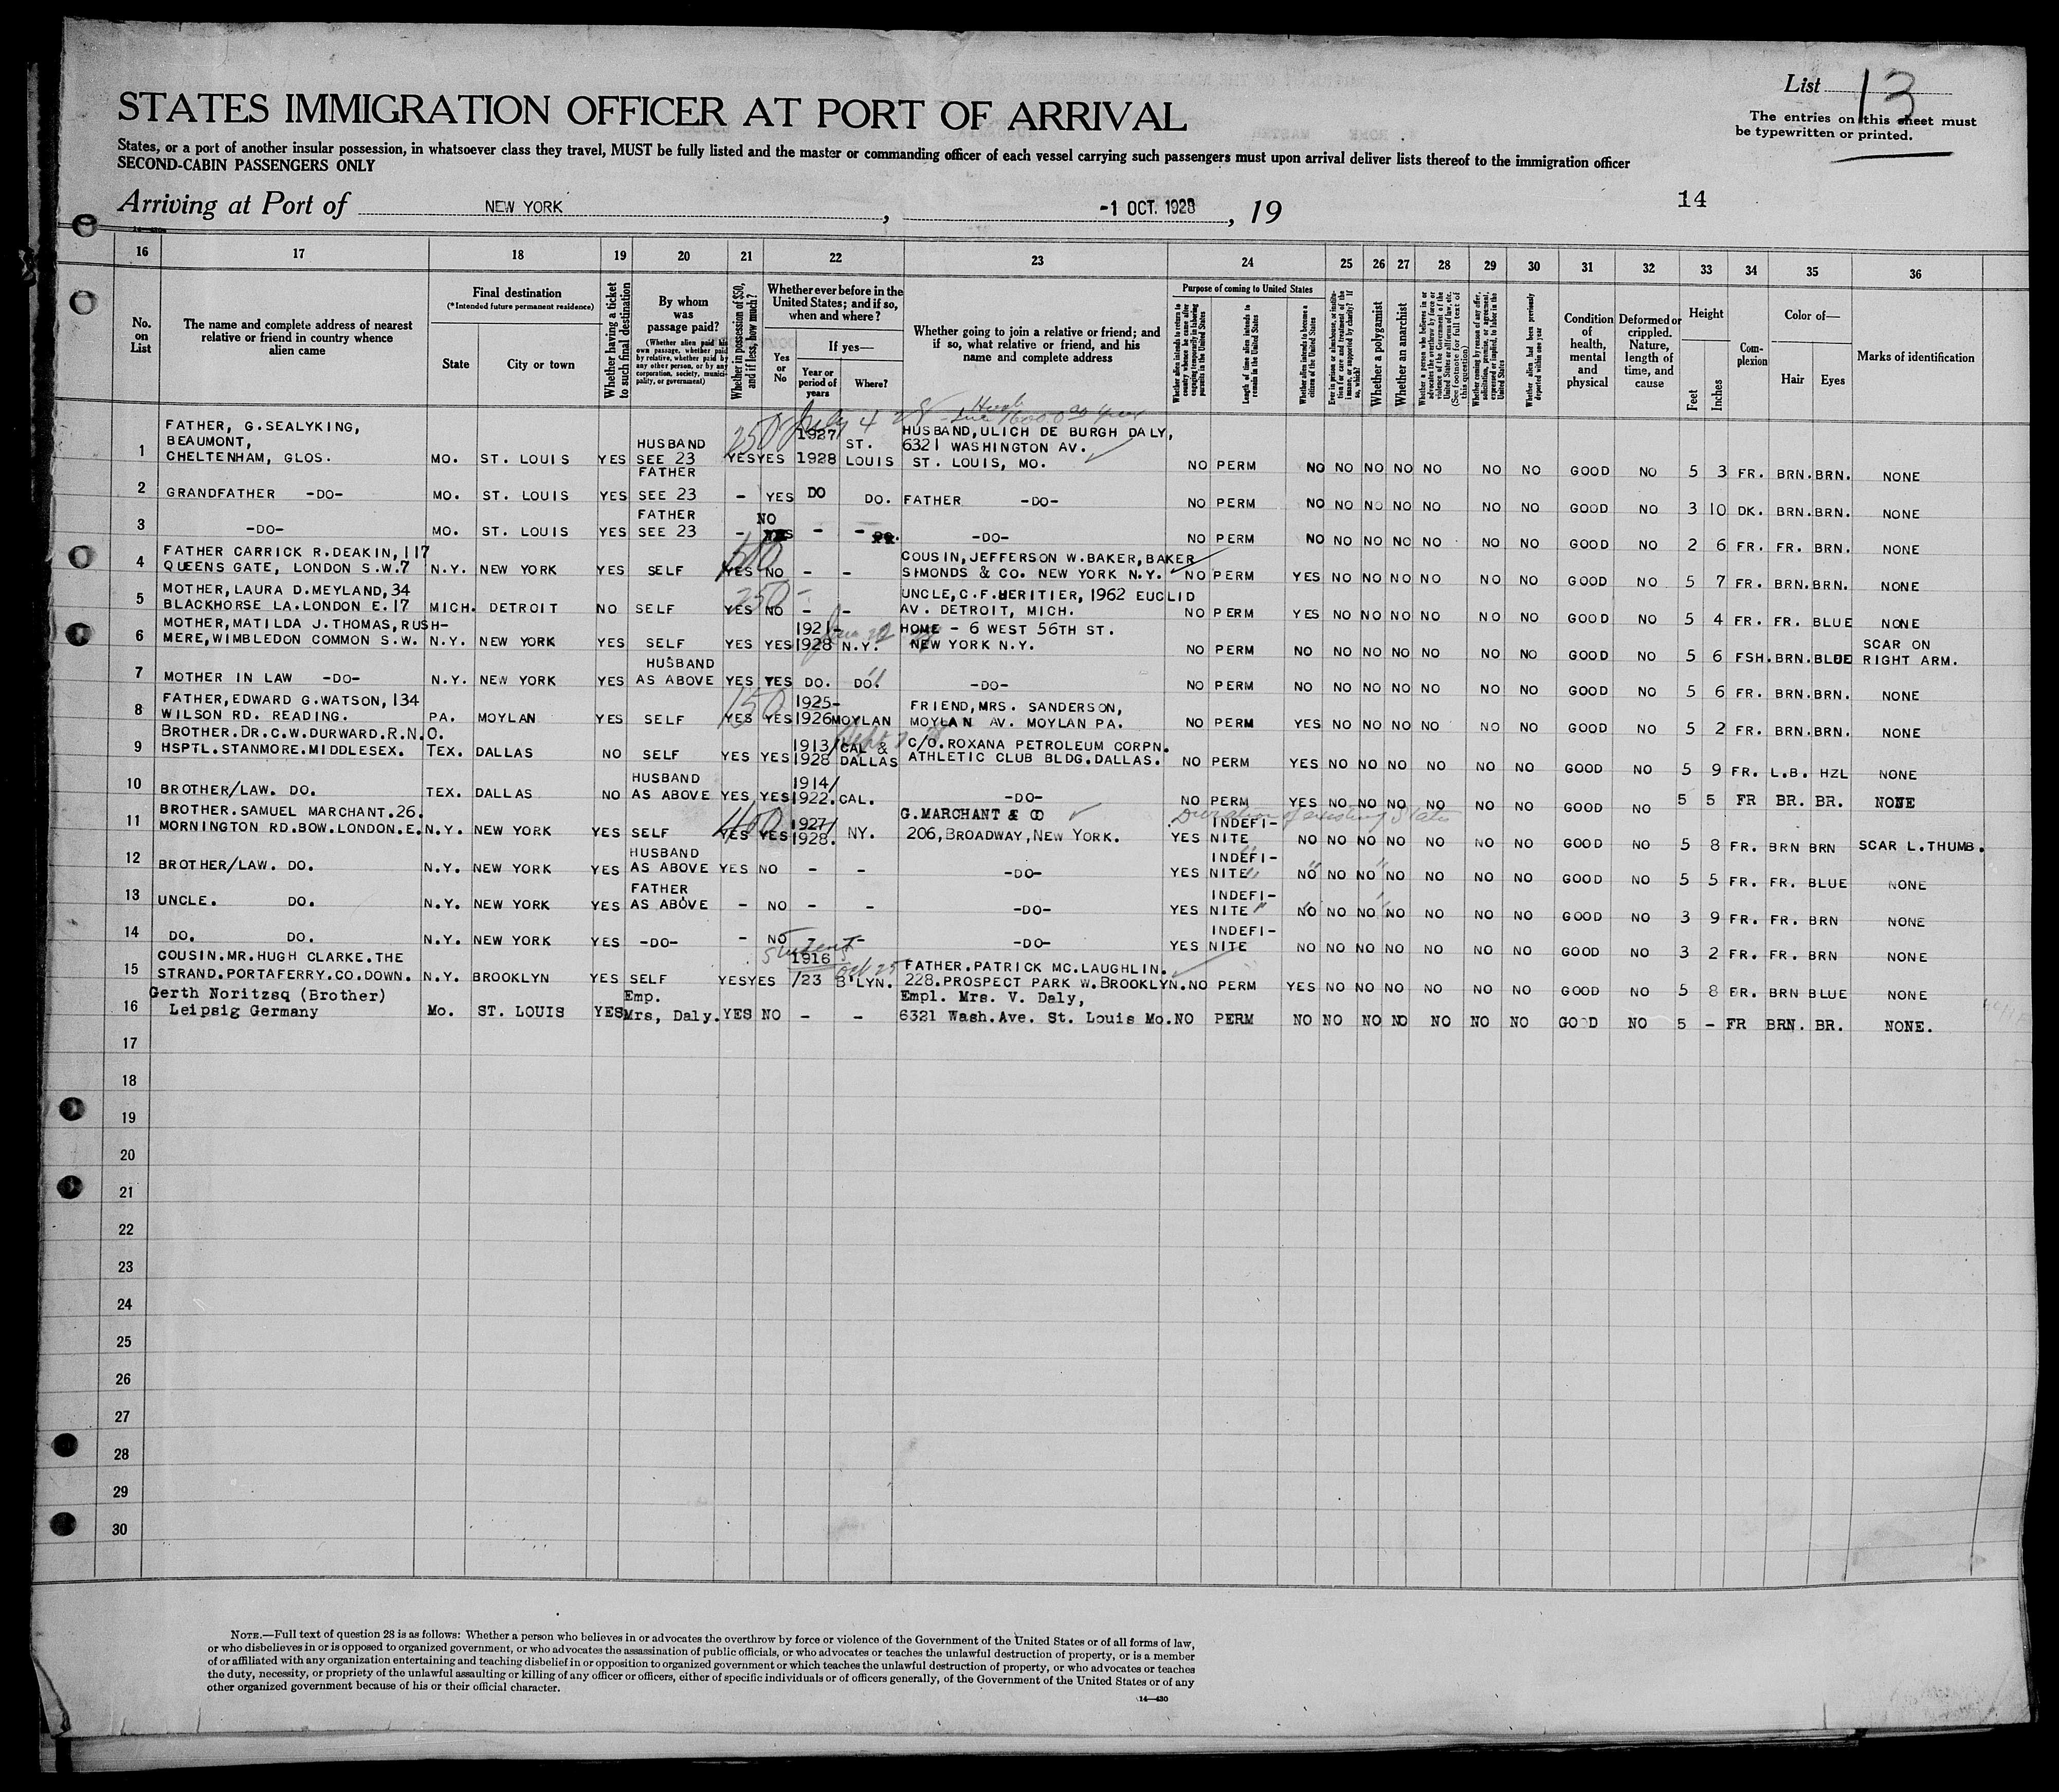 List 13
The entries on this sheet must
be typewritten or printed.
STATES IMMIGRATION OFFICER AT PORT OF ARRIVAL
States, or a port of another insular possession, in whatsoever class they travel, MUST be fully listed and the master or commanding officer of each vessel carrying such passengers must upon arrival deliver lists thereof to the immigration officer
SECOND-CABIN PASSENGERS ONLY
Arriving at Port of NEW YORK, -1 OCT. 1928, 19
14
16 17 18 19 20 21 22 23 24 25 26 27 28 29 30 31 32 33 34 35 36
No. on List
The name and complete address of nearest relative or friend in country whence alien came
Final destination
(*Intended future permanent residence)
State
City or town
Whether having a ticket to such final destination
By whom was passage paid?
(Whether alien paid his own passage, whether paid by relative, whether paid by any other person, or by any corporation, society, municipality, or government)
Whether in possession of $50, and if less, how much?
Whether ever before in the United States; and if so, when and where?
Yes or No
If yes—
Year or period of years
Where?
Whether going to join a relative or friend; and if so, what relative or friend, and his name and complete address
Purpose of coming to United States
Whether alien intends to return to country whence he came after engaging temporarily in laboring pursuits in the United States
Length of time alien intends to remain in the United States
Whether alien intends to become a citizen of the United States
Ever in prison or almshouse, or institution for care and treatment of the insane, or supported by charity? If so, which?
Whether a polygamist
Whether an anarchist
Whether a person who believes in or advocates the overthrow by force or violence of the Government of the United States or all forms of law, etc. (See footnote for full text of this question)
Whether coming by reason of any offer, solicitation, promise, or agreement, expressed or implied, to labor in the United States
Whether alien had been previously deported within one year
Condition of health, mental and physical
Deformed or crippled. Nature, length of time, and cause
Height
Feet
Inches
Complexion
Color of—
Hair
Eyes
Marks of identification
July 4 28
1 FATHER, G.SEALYKING,
BEAUMONT,
CHELTENHAM, GLOS. MO. ST. LOUIS YES HUSBAND SEE 23 250 YES YES 1927/ 1928 ST. LOUIS HUSBAND,ULICH DE BURGH DALY,
6321 WASHINGTON AV.
ST. LOUIS, MO. NO PERM NO NO NO NO NO NO NO GOOD NO 5 3 FR. BRN. BRN. NONE
2 GRANDFATHER -DO- MO. ST. LOUIS YES FATHER SEE 23 - YES DO DO. FATHER -DO- NO PERM NO NO NO NO NO NO NO GOOD NO 3 10 DK. BRN. BRN. NONE
3 -DO- MO. ST. LOUIS YES FATHER SEE 23 - NO - - -DO- NO PERM NO NO NO NO NO NO NO GOOD NO 2 6 FR. FR. BRN. NONE
4 FATHER CARRICK R.DEAKIN, 117
QUEENS GATE, LONDON S.W.7 N.Y. NEW YORK YES SELF YES NO - - COUSIN,JEFFERSON W.BAKER,BAKER
SIMONDS & CO. NEW YORK N.Y. NO PERM YES NO NO NO NO NO NO GOOD NO 5 7 FR. BRN. BRN. NONE
5 MOTHER, LAURA D.MEYLAND,34
BLACKHORSE LA.LONDON E.17 MICH. DETROIT NO SELF 250 YES NO - - UNCLE,C.F.HERITIER, 1962 EUCLID
AV. DETROIT, MICH. NO PERM YES NO NO NO NO NO NO GOOD NO 5 4 FR. FR. BLUE NONE
6 MOTHER, MATILDA J.THOMAS,RUSH-
MERE,WIMBLEDON COMMON S.W. N.Y. NEW YORK YES SELF YES YES 1921- 1928 N.Y. HOME - 6 WEST 56TH ST.
NEW YORK N.Y. NO PERM NO NO NO NO NO NO NO GOOD NO 5 6 FSH. BRN. BLUE SCAR ON RIGHT ARM.
7 MOTHER IN LAW -DO- N.Y. NEW YORK YES HUSBAND AS ABOVE YES YES DO. DO. -DO- NO PERM NO NO NO NO NO NO NO GOOD NO 5 6 FR. BRN. BRN. NONE
8 FATHER, EDWARD G.WATSON, 134
WILSON RD. READING. PA. MOYLAN YES SELF 150 YES YES 1925- 1926 MOYLAN FRIEND,MRS. SANDERSON,
MOYLAN AV. MOYLAN PA. NO PERM YES NO NO NO NO NO NO GOOD NO 5 2 FR. BRN. BRN. NONE
9 BROTHER.DR.C.W.DURWARD.R.N.O.
HSPTL.STANMORE.MIDDLESEX. TEX. DALLAS NO SELF YES YES 1913/ 1928 CAL & DALLAS C/O.ROXANA PETROLEUM CORPN.
ATHLETIC CLUB BLDG.DALLAS. NO PERM YES NO NO NO NO NO NO GOOD NO 5 9 FR. L.B. HZL NONE
10 BROTHER/LAW. DO. TEX. DALLAS NO HUSBAND AS ABOVE YES YES 1914/ 1922. CAL. -DO- NO PERM YES NO NO NO NO NO NO GOOD NO 5 5 FR BR. BR. NONE
Duration of existing Status
11 BROTHER. SAMUEL MARCHANT.26.
MORNINGTON RD.BOW.LONDON.E. N.Y. NEW YORK YES SELF 400 YES YES 1927/ 1928. NY. G.MARCHANT & CO
206, BROADWAY, NEW YORK. YES INDEFI-NITE NO NO NO NO NO NO NO GOOD NO 5 8 FR. BRN BRN SCAR L.THUMB.
12 BROTHER/LAW. DO. N.Y. NEW YORK YES HUSBAND AS ABOVE YES NO - - -DO- YES INDEFI-NITE NO NO NO NO NO NO NO GOOD NO 5 5 FR. FR. BLUE NONE
13 UNCLE. DO. N.Y. NEW YORK YES FATHER AS ABOVE - NO - - -DO- YES INDEFI-NITE NO NO NO NO NO NO NO GOOD NO 3 9 FR. FR. BRN NONE
14 DO. DO. N.Y. NEW YORK YES -DO- - NO - - -DO- YES INDEFI-NITE NO NO NO NO NO NO NO GOOD NO 3 2 FR. FR. BRN NONE
Student
15 COUSIN.MR.HUGH CLARKE.THE
STRAND.PORTAFERRY.CO.DOWN. N.Y. BROOKLYN YES SELF YES YES 1916 /23 B'LYN. FATHER.PATRICK MC.LAUGHLIN.
228.PROSPECT PARK W.BROOKLYN. NO PERM YES NO NO NO NO NO NO GOOD NO 5 8 FR. BRN BLUE NONE
16 Gerth Noritzsq (Brother)
Leipsig Germany Mo. ST. LOUIS YES Emp. Mrs, Daly. YES NO - - Empl. Mrs. V. Daly,
6321 Wash.Ave. St. Louis Mo. NO PERM NO NO NO NO NO NO NO GOOD NO 5 - FR BRN. BR. NONE.
17
18
19
20
21
22
23
24
25
26
27
28
29
30
NOTE.—Full text of question 28 is as follows: Whether a person who believes in or advocates the overthrow by force or violence of the Government of the United States or of all forms of law,
or who disbelieves in or is opposed to organized government, or who advocates the assassination of public officials, or who advocates or teaches the unlawful destruction of property, or is a member
of or affiliated with any organization entertaining and teaching disbelief in or opposition to organized government or which teaches the unlawful destruction of property, or who advocates or teaches
the duty, necessity, or propriety of the unlawful assaulting or killing of any officer or officers, either of specific individuals or of officers generally, of the Government of the United States or of any
other organized government because of his or their official character.
14—430